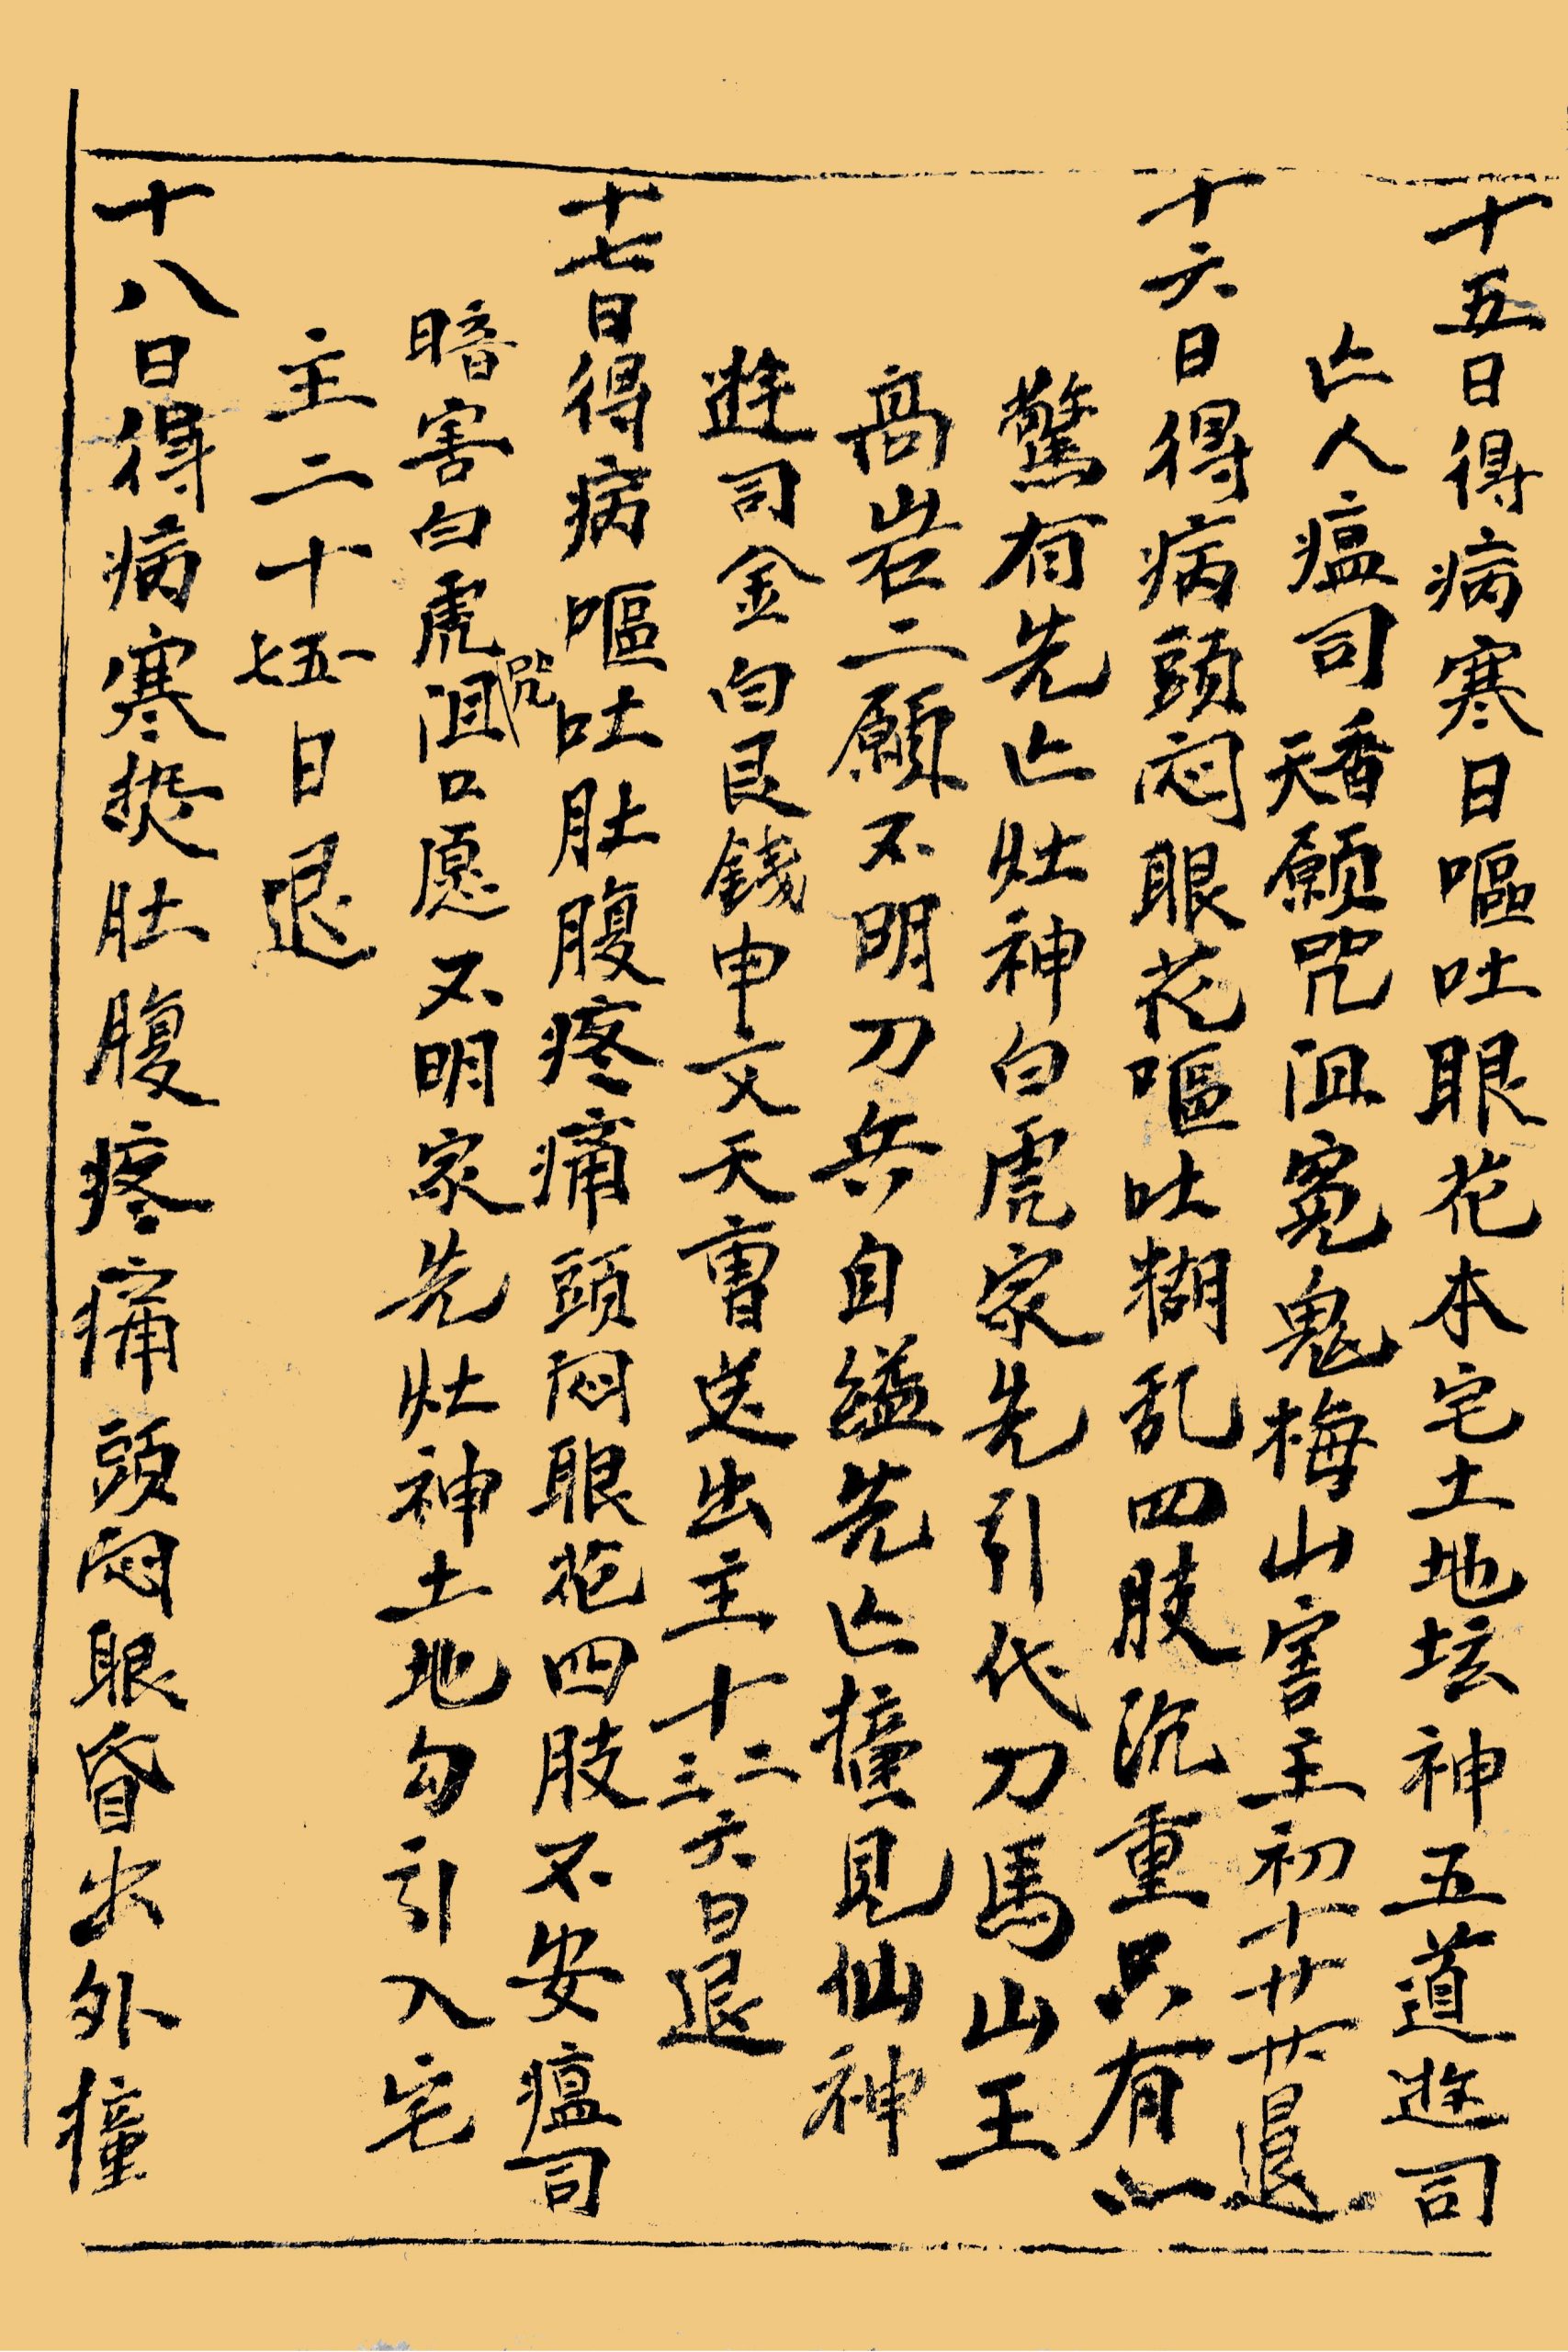 十五日得病寒日嘔吐眼花本宅土地坛神五道遊司
亡人瘟司天香願咒詛冤鬼梅山害主初十廿廿六日退
十六日得病頭闷眼花嘔吐糊乱四肢沉重只有心
驚有先亡灶神白虎家先引代刀馬山王
高岩二願不明刀兵自縊先亡撞見仙神
遊司金白艮錢申文天曹送出主十二三六日退
十七日得病嘔吐肚腹疼痛頭闷眼花四肢不安瘟司
暗害白虎咒詛口愿不明家先灶神土地勾引入宅
主二十五七日退
十八日得病寒热肚腹疼痛頭闷眼昏出外撞